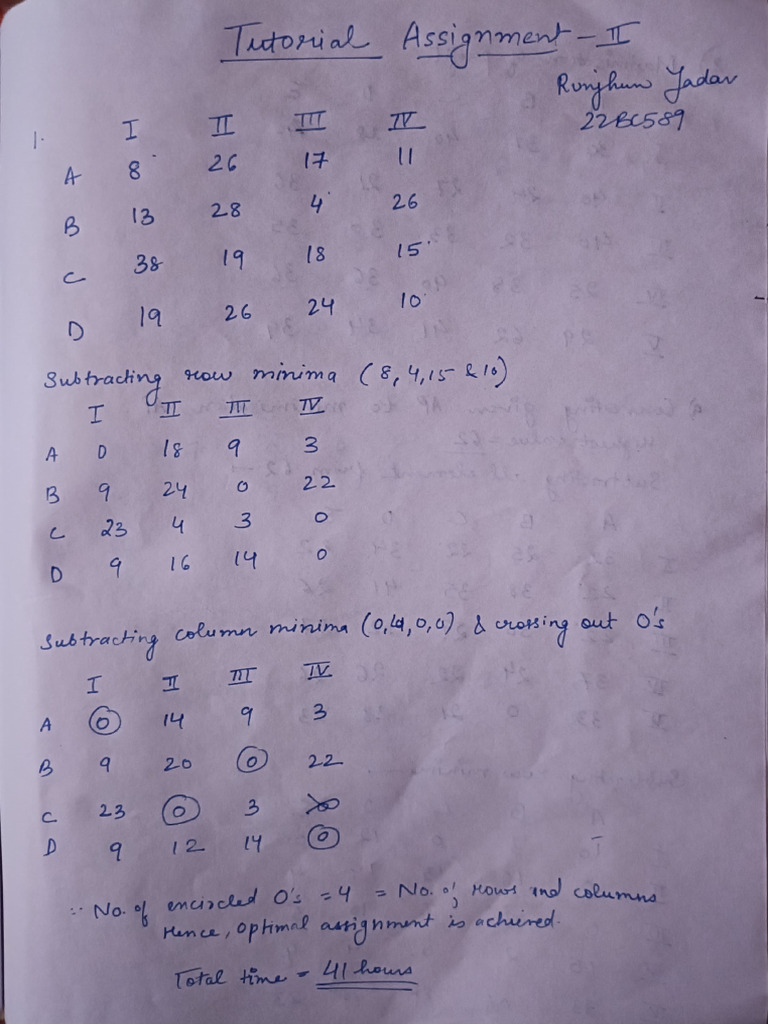 Tutorial Assignment - II
Runjhun Yadav
22BC589
1.
I II III IV
A 8 26 17 11
B 13 28 4 26
C 38 19 18 15
D 19 26 24 10
Subtracting row minima (8, 4, 15 & 10)
I II III IV
A 0 18 9 3
B 9 24 0 22
C 23 4 3 0
D 9 16 14 0
Subtracting column minima (0, 4, 0, 0) & crossing out 0's
I II III IV
A 0 14 9 3
B 9 20 0 22
C 23 0 3 0
D 9 12 14 0
∵ No. of encircled 0's = 4 = No. of rows and columns
Hence, optimal assignment is achieved.
Total time = 41 hours